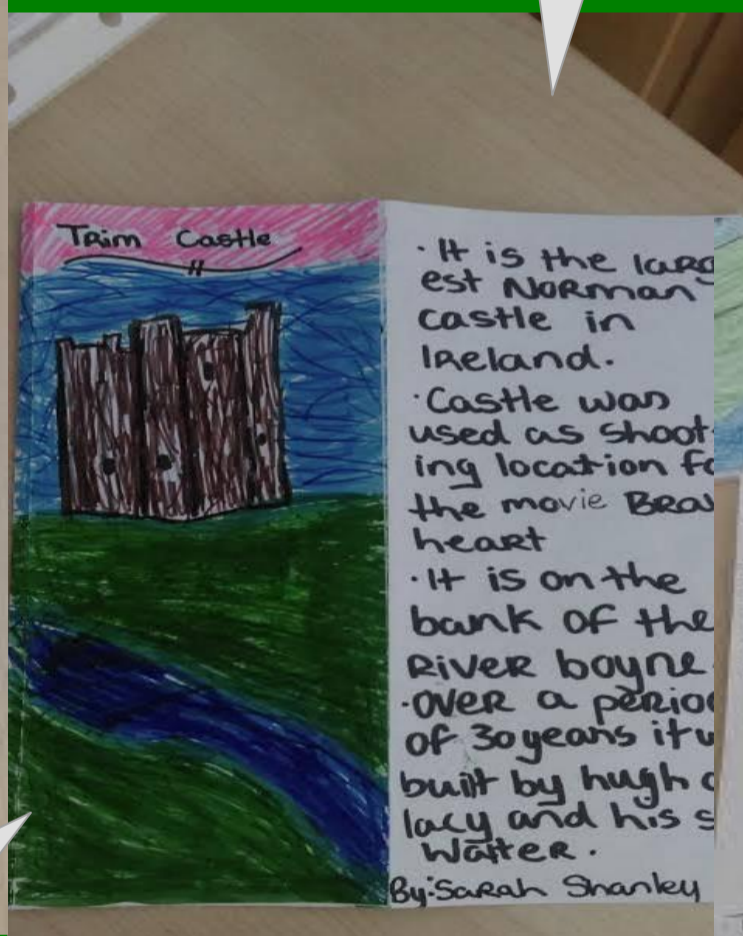 Trim Castle
· It is the larg
est Norman
castle in
Ireland.
· Castle was
used as shoot
ing location fo
the movie Brav
heart
· It is on the
bank of the
River boyne
· over a period
of 30 years it w
built by hugh d
lacy and his s
Walter.
By: Sarah Shanley